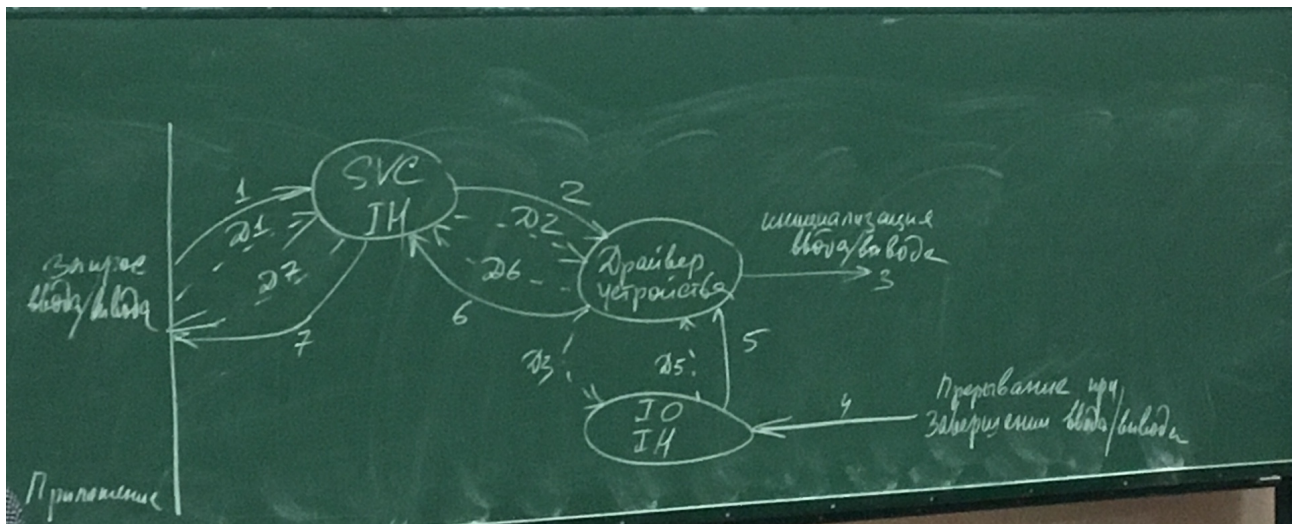 SVC
IH
1
D1
D7
7
2
D2
D6
6
Запрос
ввода/вывода
Драйвер
устройства
инициализация
ввода/вывода
3
D3
D5
5
IO
IH
4
Прерывание при
Завершении ввода/вывода
Приложение